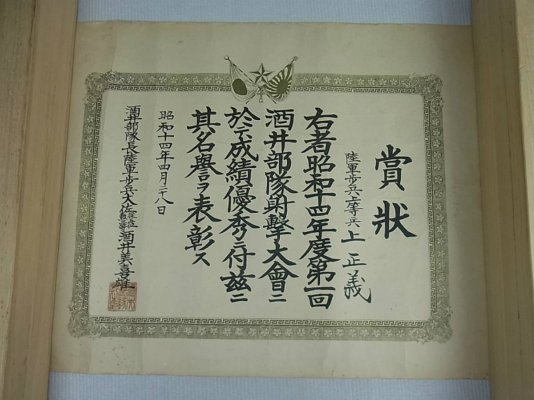 賞狀
陸軍步兵上等兵 上正義
右者昭和十四年度第一回
酒井部隊射擊大會ニ
於テ成績優秀ニ付茲ニ
其名譽ヲ表彰ス
昭和十四年四月二十八日
酒井部隊長陸軍步兵大佐 酒井美喜雄